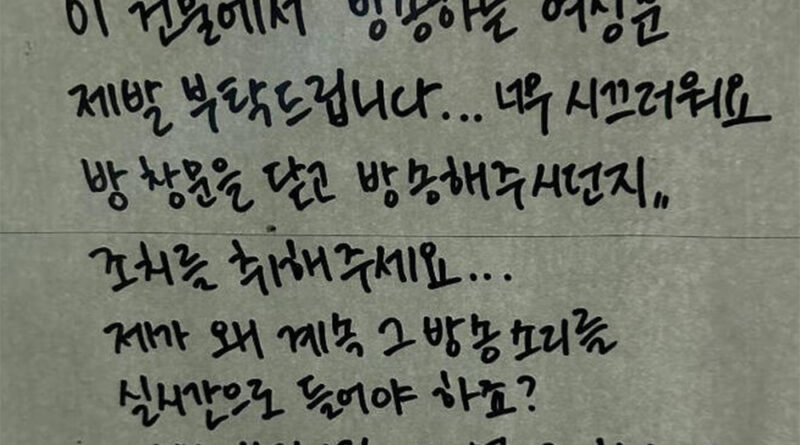 이 건물에서 방송하는 여성분
제발 부탁드립니다... 너무 시끄러워요
방 창문을 닫고 방송해주시던지,,
조치를 취해주세요...
제가 왜 계속 그 방송소리를
실시간으로 들어야 하죠?